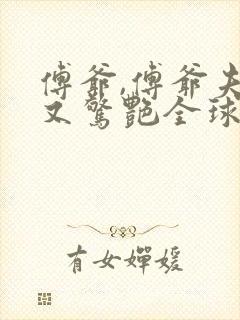 傅爷,傅爷夫
又驚艷全球
有女嬋媛